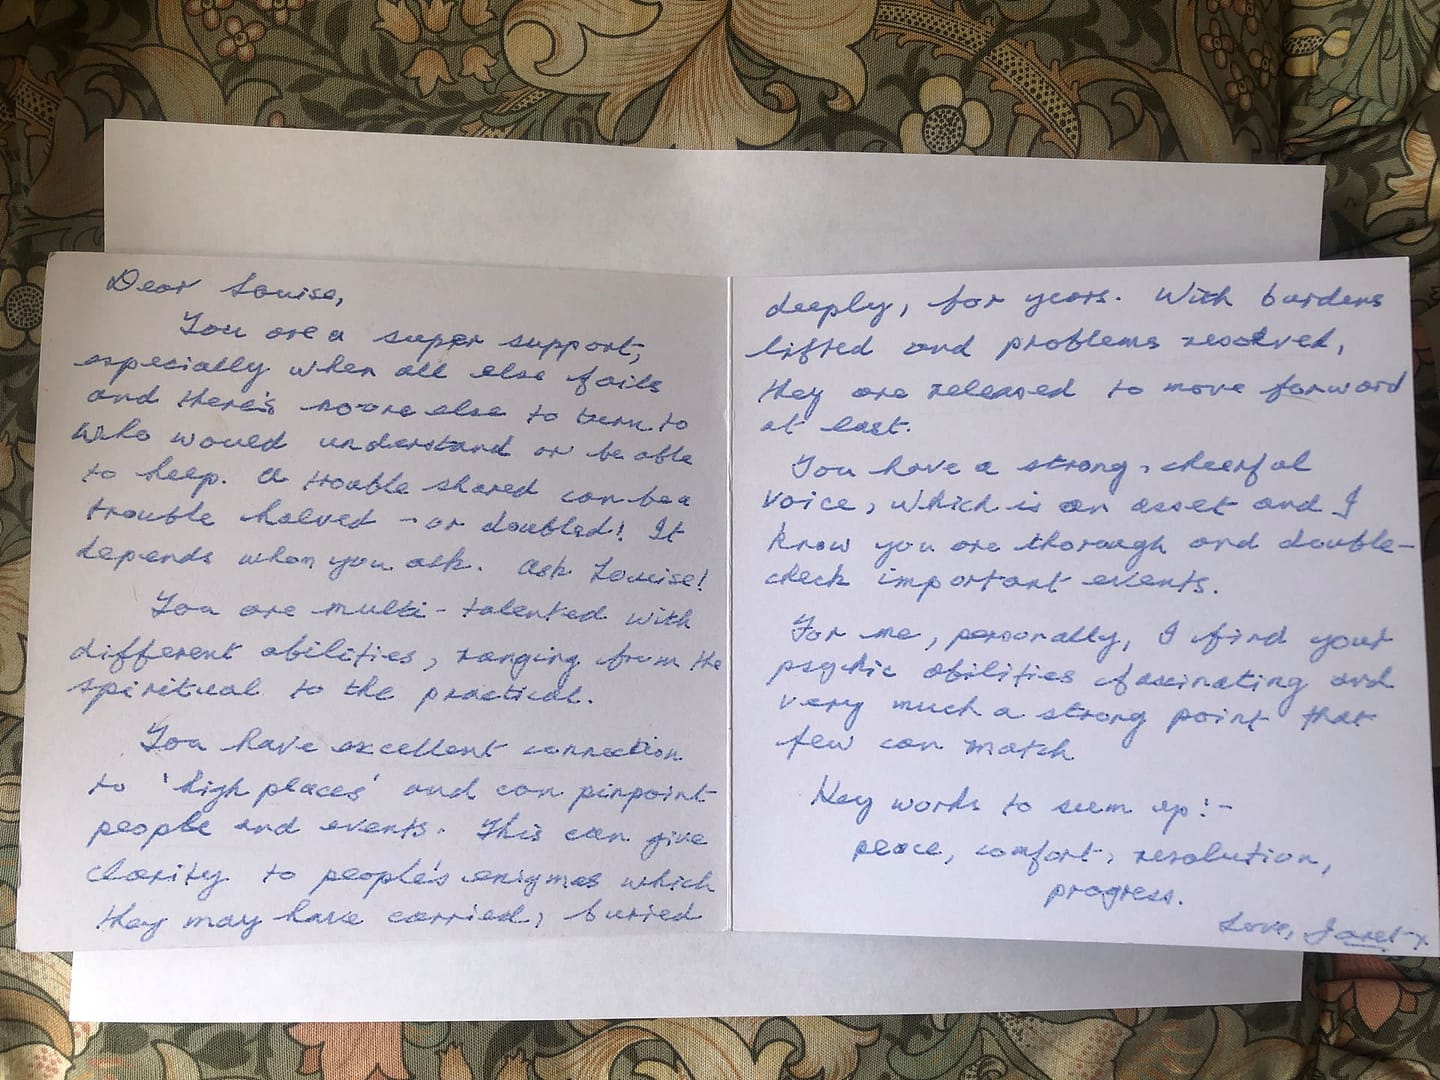 Dear Louise,
You are a super support,
especially when all else fails
and there's no-one else to turn to
who would understand or be able
to help. A trouble shared can be a
trouble halved - or doubled! It
depends whom you ask. Ask Louise!
You are multi-talented with
different abilities, ranging from the
spiritual to the practical.
You have excellent connection
to 'high places' and can pinpoint
people and events. This can give
clarity to people's enigmas which
they may have carried, buried
deeply, for years. With burdens
lifted and problems resolved,
they are released to move forward
at last.
You have a strong, cheerful
voice, which is an asset and I
know you are thorough and double-
check important events.
For me, personally, I find your
psychic abilities fascinating and
very much a strong point that
few can match.
Key words to sum up:-
peace, comfort, resolution,
progress.
Love, Janet x